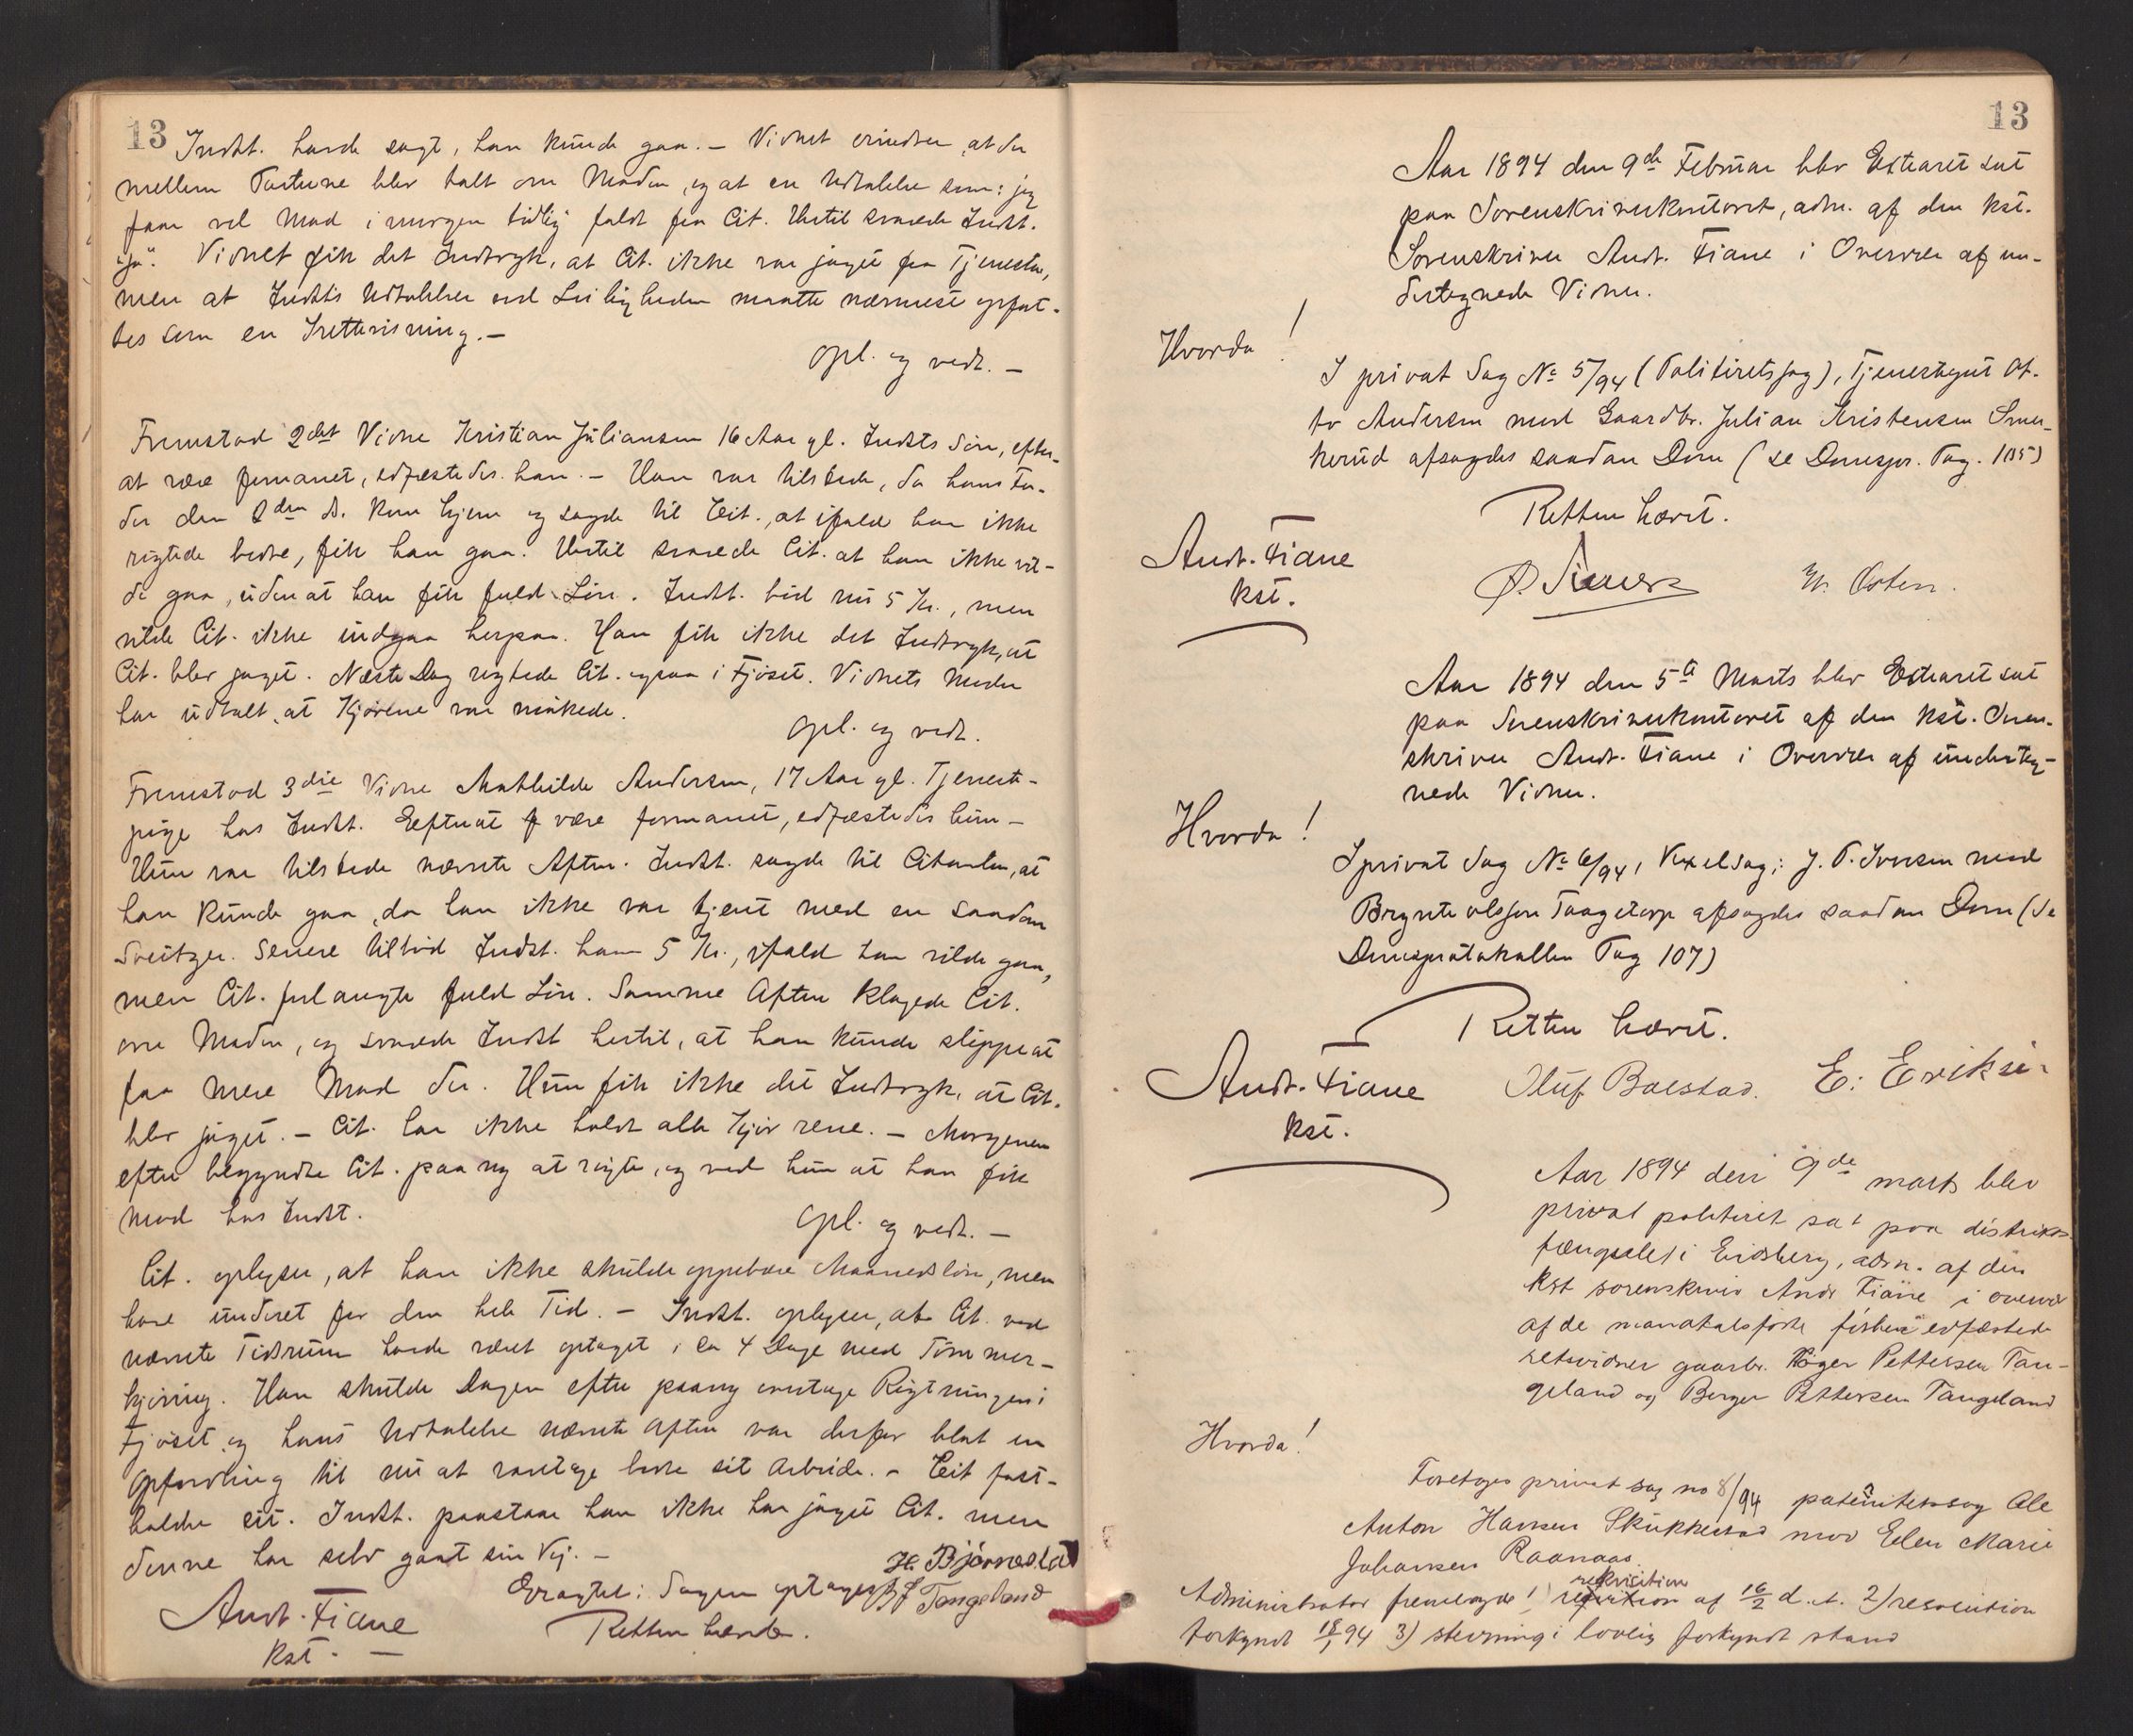 13
Indst. havde sagt, han kunde gaa. – Vidnet erindrer, at der
mellem Parterne blev talt om Maden, og at en Udtalelse som: jeg
faar vel Mad i morgen tidlig faldt fra Cit. Hertil svarede Indst.
"ja". Vidnet fik det Indtryk, at Cit. ikke var jaget fra Tjenesten,
men at Indsts Udtalelser ved Leiligheden maatte nærmest opfat-
tes som en Irettevisning. –
Opl. og vedt. –
Fremstod 2det Vidne Kristian Juliansen 16 Aar gl. Indsts Søn, efter
at være formanet, edfæstedes han. – Han var tilstede, da hans Fa-
der den 2den ds. kom hjem og sagde til Cit., at ifald han ikke
røgtede bedre, fik han gaa. Hertil svarede Cit. at han ikke vil-
de gaa, uden at han fik fuld Løn. Indst. bød nu 5 Kr., men
vilde Cit. ikke indgaa herpaa. Han fik ikke det Indtryk, at
Cit. blev jaget. Næste Dag røgtede Cit. ogsaa i Fjøset. Vidnets Moder
har udtalt, at Kjørene var minkede.
Opl. og vedt.
Fremstod 3die Vidne Mathilde Andersen, 17 Aar gl. Tjeneste-
pige hos Indst. Efterat være formanet, edfæstedes hun –
Hun var tilstede nævnte Aften. Indst. sagde til Citanten, at
han kunde gaa, da han ikke var tjent med en saadan
Sveitzer. Senere tilbød Indst. ham 5 Kr., ifald han vilde gaa,
men Cit. forlangte fuld Løn. Samme Aften klagede Cit.
over Maden, og svarede Indst hertil, at han kunde slippe at
faa mere Mad der. Hun fik ikke det Indtryk, at Cit.
blev jaget. – Cit. har ikke holdt alle Kjør rene. – Morgenen
efter begyndte Cit. paa ny at røgte, og ved hun at han fik
Mad hos Indst.
Opl. og vedt. –
Cit. oplyser, at han ikke skulde oppebære Maanedsløn, men
have under et for den hele Tid. – Indst. oplyser, at Cit. ved
nævnte Tidsrum havde været optaget i ca 4 Dage med Tømmer-
kjøring. Han skulde Dagen efter paany overtage Røgtningen i
Fjøset og hans Udtalelse nævnte Aften var derfor blot en
Opfordring til nu at varetage bedre sit Arbeide. – Cit fast-
holder sit. Indst. paastaar han ikke har jaget Cit. men
denne har selv gaat sin Vej. –
H. Bjørnestad
Eragtet: Sagen optages
Tangeland
Andr. Fiane
Retten hævet.
Kst. –
13
Aar 1894 den 9de Februar blev Extraret sat
paa Sorenskriverkontoret, adm. af den kst.
Sorenskriver Andr. Fiane i Overvær af un-
dertegnede Vidner.
Hvorda!
I privat Sag No 5/94 (Politiretssag), Tjenestegut Ot-
to Andersen mod Gaardbr. Julian Kristensen Smer-
kerud afsagdes saadan Dom (se Domspr. Pag. 105)
Retten hævet.
Andr. Fiane
kst.
H. Østen.
Aar 1894 den 5te Marts blev Extraret sat
paa Sorenskriverkontoret af den kst. Soren-
skriver Andr. Fiane i Overvær af underteg-
nede Vidner.
Hvorda!
I privat Sag No 6/94, Vexelsag: J. P. Iversen mod
Brynte Olssen Taagetorp afsagdes saadan Dom (se
Domsprotokollen Pag 107)
Retten hævet.
Andr. Fiane
kst.
Oluf Bolstad. E. Eriksen
Aar 1894 den 9de marts blev
privat politiret sat paa distrikts-
fængselet i Eidsberg, adm. af den
kst sorenskriver Andr Fiane i overvær
af de mandtalsførte førhen edfæstede
retsvidner gaardbr. Roger Pettersen Tan-
geland og Berger Pettersen Tangeland
Hvorda!
Foretoges privat sag no 8/94 paternitetssag Ole
Anton Hansen Skukkestad mod Elen Marie
Johansen Raanaas.
rekvisition
Administrator fremlagde 1) af 16/2 d. A. 2) resolution
forkyndt 18/1 94 3) stevning i lovlig forkyndt stand